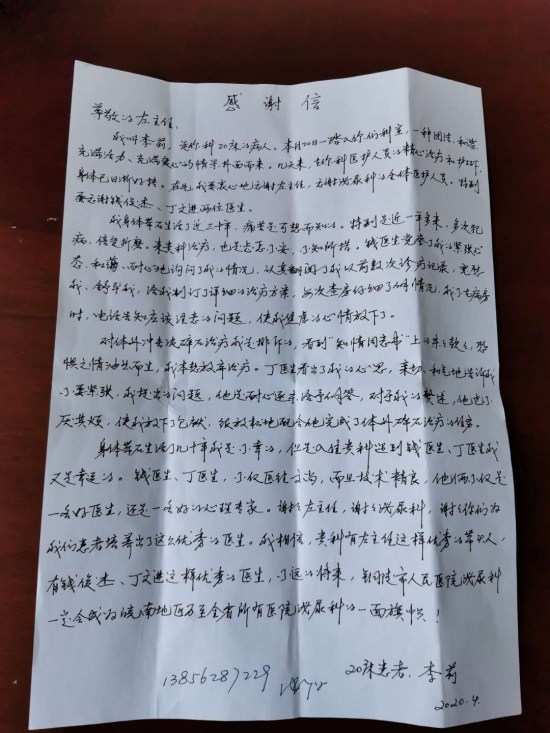 感谢信
尊敬的左主任，
我叫李莉。是你科20床的病人。本月20日一踏入你们科室，一种团结、和谐、
充满活力、充满爱心的情景扑面而来。几天来，在你科医护人员的精心治疗和护理下，
身体已日渐好转。在此，我要衷心地感谢左主任，感谢泌尿科的全体医护人员。特别
要感谢钱俊杰、丁文进两位医生。
我身体带石生活了近二十年，痛苦是可想而知的。特别是近一年多来，多次犯
病，倍受折磨。来贵科治疗，也是忐忑不安，不知所措。钱医生觉察了我的紧张心
态，和蔼、耐心地询问了我的情况，认真翻阅了我以前数次诊疗记录，安慰
我、舒导我，给我制订了详细的治疗方案。每次查房仔细了解情况，我不在病房
时，电话告知应该注意的问题，使我焦虑的心情放下了。
对体外冲击波碎石治疗我是排斥的，看到"知情同意书"上的条条款款，恐
惧之情油然而生，或本想放弃治疗。丁医生看出了我的心思，亲切、和气地告诉我
不要紧张，我提出的问题，他是耐心逐条给予回答，对于我的赘述，他也不
厌其烦，使我放下了包袱，很放松地配合他完成了体外碎石治疗的任务。
身体带石生活了几十年我是不幸的，但是入住贵科遇到钱医生、丁医生我
又是幸运的。钱医生、丁医生，不仅医德高尚，而且技术精良，他们俩不仅是
一名好医生，还是一名好的心理专家。谢谢左主任，谢谢泌尿科，谢谢你们为
我们患者培养出了这么优秀的医生。我相信，贵科有左主任这样优秀的带头人，
有钱俊杰、丁文进这样优秀的医生，不远的将来，铜陵市人民医院泌尿科
一定会成为皖南地区乃至全省所有医院泌尿科的一面旗帜！
20床患者：李莉
13856287229
2020.4.